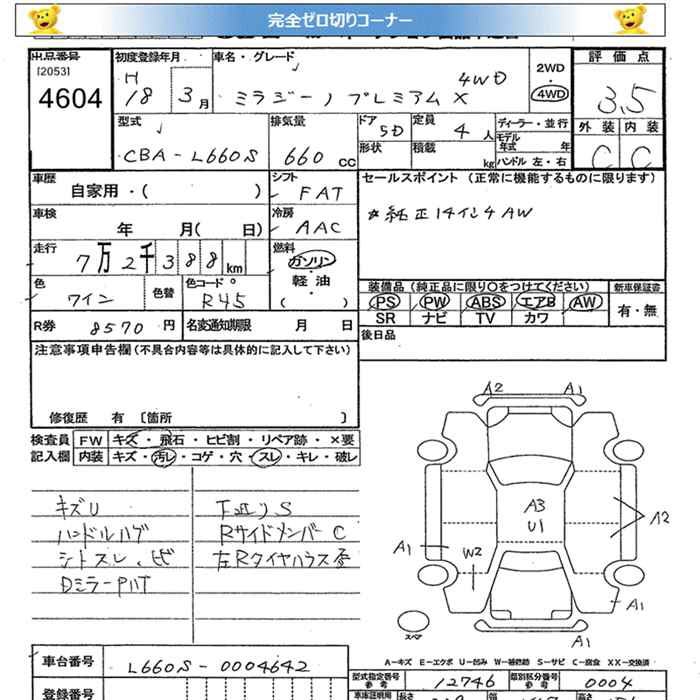 完全ゼロ切りコーナー
出品番号 初度登録年月 車名・グレード 評価点
[2053] H 4WD 2WD
4604 18 3月 ミラジーノ プレミアム X 4WD 3.5
型式 排気量 ドア 5D 定員 4人 ディーラー・並行 外装 内装
モデル年式 年
CBA-L660S 660cc 形状 積載 kg ハンドル 左・右 C C
車歴 シフト セールスポイント (正常に機能するものに限ります)
自家用・( ) FAT
車検 冷房 *純正14インチAW
年 月( 日) AAC
走行 燃料
7万2千388km ガソリン・軽油・( )
色 色替 色コード 装備品 (純正品に限り○をつけてください) 新車保証書
ワイン R45 PS PW ABS エアB AW 有・無
SR ナビ TV カワ
R券 8570円 名変通知期限 月 日 後日品
注意事項申告欄(不具合内容等は具体的に記入して下さい)
修復歴 有 〔箇所 〕
検査員 FW キズ・飛石・ヒビ割・リペア跡・×要
記入欄 内装 キズ・汚レ・コゲ・穴・スレ・キレ・破レ
A2 A1
キズU 下廻りS
ハンドルハゲ RサイドメンバーC
シートスレ、ヒビ 左Rタイヤハウス
DミラーPハT
A3
U1
A2
A1
W2
A1
スペア
A1
A-キズ E-エクボ U-凹み W-補修跡 S-サビ C-腐食 XX-交換済
車台番号 L660S-0004642
型式指定番号 参考 12746 類別区分番号 参考 0004
登録番号
車庫証明用 長さ 幅 高さ